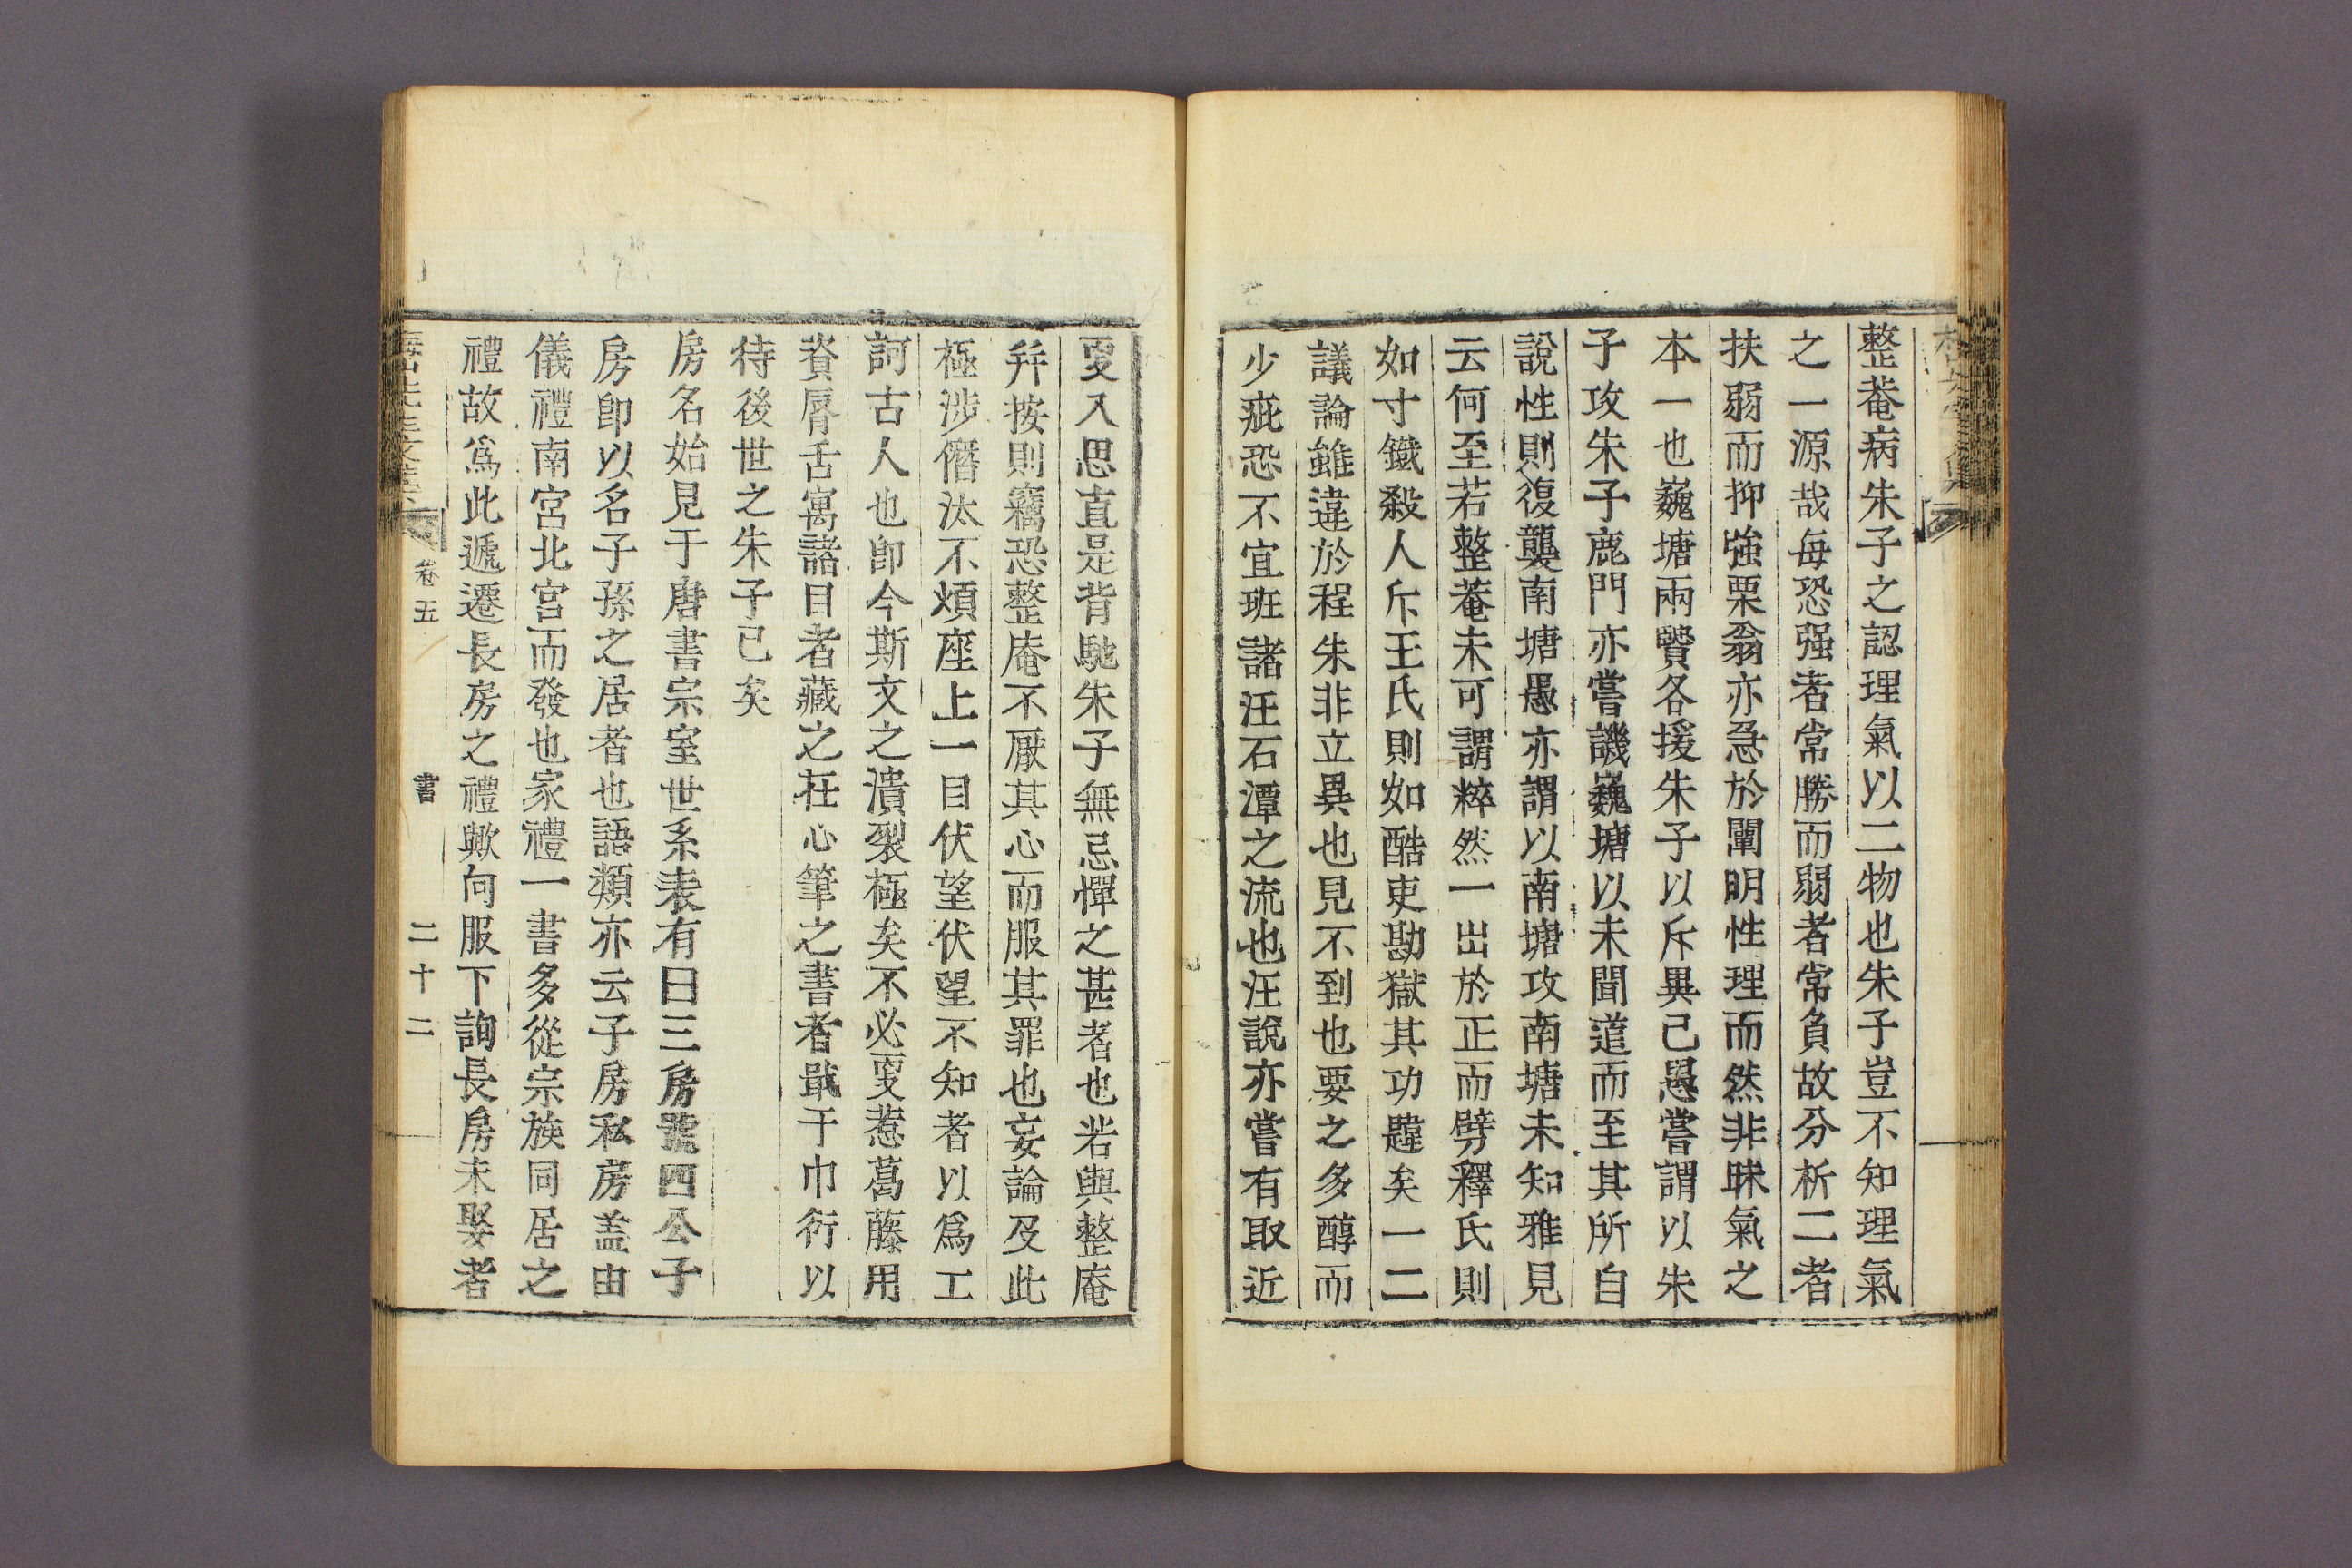 整菴病朱子之認理氣以二物也朱子豈不知理氣
之一源哉每恐强者常勝而弱者常負故分析二者
扶弱而抑強栗翁亦急於闡明性理而然非昧氣之
本一也巍塘兩賢各援朱子以斥異己愚嘗謂以朱
子攻朱子鹿門亦嘗譏巍塘以未聞道而至其所自
說性則復襲南塘愚亦謂以南塘攻南塘未知雅見
云何至若整菴未可謂粹然一出於正而劈釋氏則
如寸鐵殺人斥王氏則如酷吏勘獄其功韙矣一二
議論雖違於程朱非立異也見不到也要之多醇而
少疵恐不宜班諸汪石潭之流也汪說亦嘗有取近
更入思直是背馳朱子無忌憚之甚者也若與整庵
幷按則竊恐整庵不厭其心而服其罪也妄論及此
極涉僭汰不煩座上一目伏望伏望不知者以爲工
訶古人也卽今斯文之潰裂極矣不必更惹葛藤用
資脣舌寓諸目者藏之在心筆之書者戢于巾衍以
待後世之朱子已矣
房名始見于唐書宗室世系表有曰三房號四公子
房卽以名子孫之居者也語類亦云子房私房盖由
儀禮南宮北宮而發也家禮一書多從宗族同居之
禮故爲此遞遷長房之禮歟向服下詢長房未娶者
卷五
書
二十二